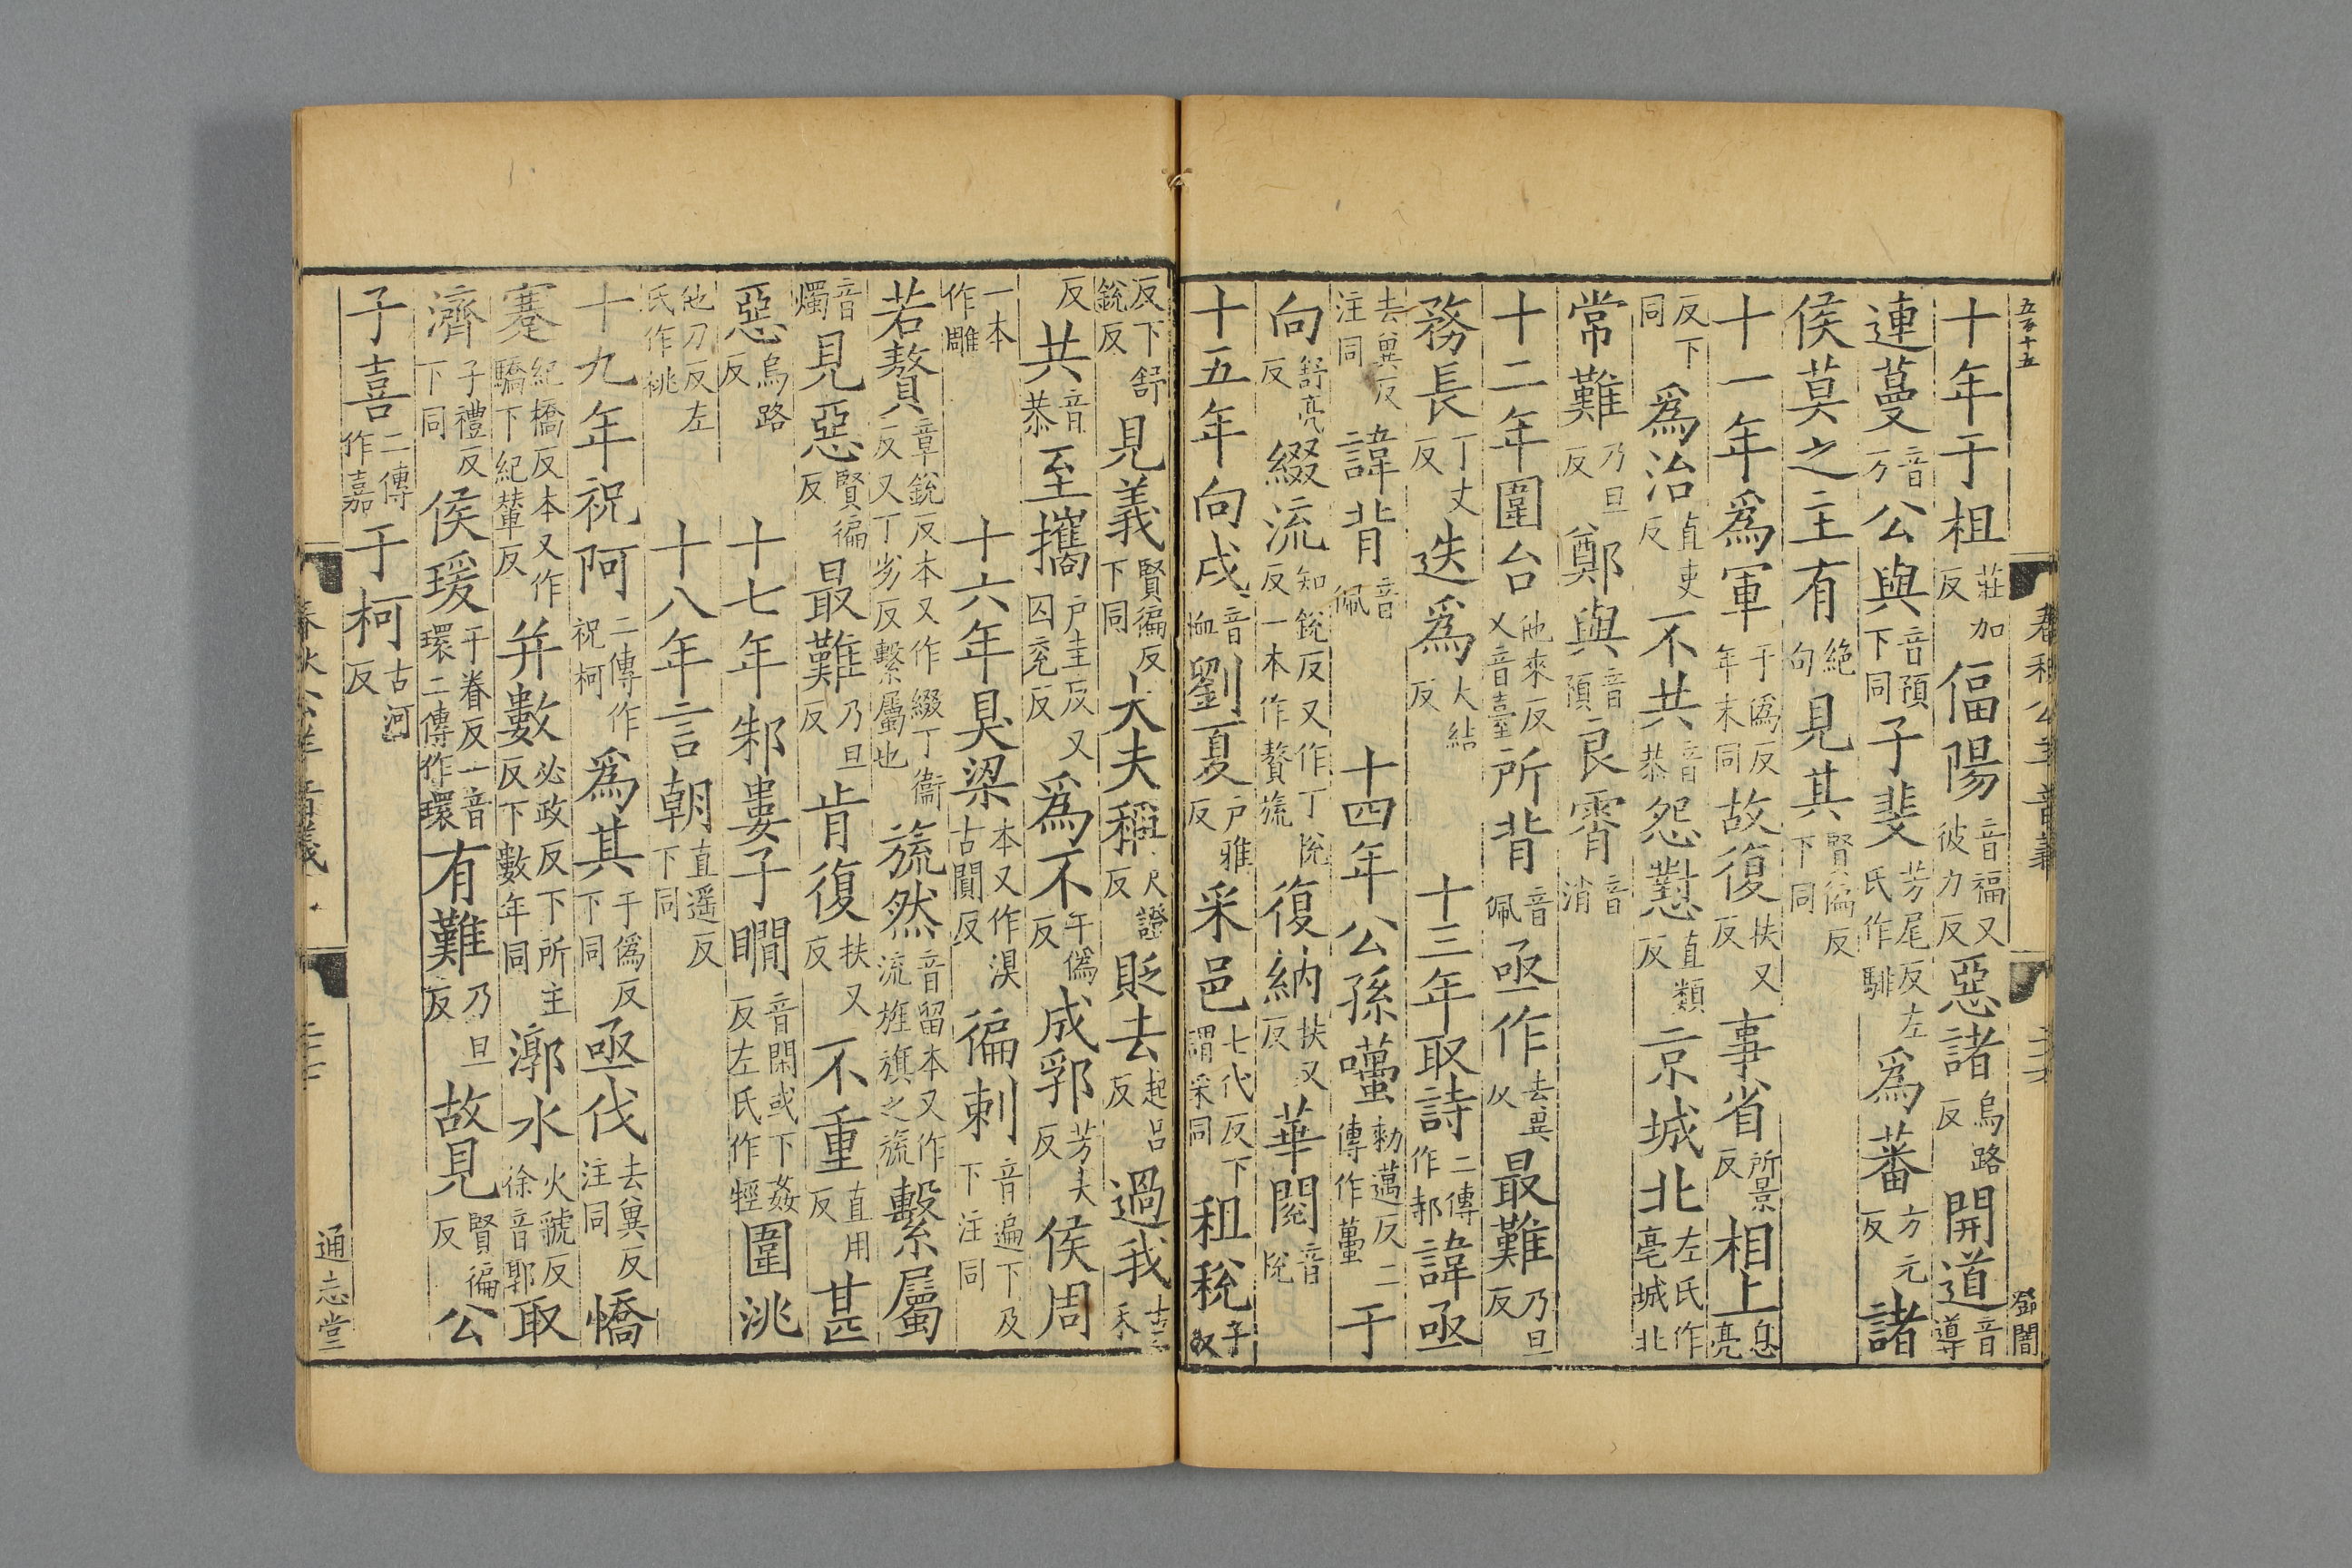 五百十五
鄧闇
十年于柤莊加反偪陽音福又彼力反惡諸烏路反開道音導
連蔓音万公與音預下同子斐芳尾反左氏作騑爲蕃方元反諸
侯莫之主有絶句見其賢徧反下同
十一年爲軍于僞反年末同故復扶又反事省所景反相上息亮
反下同爲治直吏反不共音恭怨懟直類反京城北左氏作亳城北
常難乃旦反鄭與音預良霄音消
十二年圍台他來反又音臺所背音佩亟作去異反最難乃旦反
務長丁丈反迭爲大結反十三年取詩二傳作邿諱亟
去異反注同諱背音佩十四年公孫囆勑邁反二傳作蠆于
向舒亮反綴流知銳反又作丁悅反一本作贅旒復納扶又反華閱音悅
十五年向戌音恤劉夏戶雅反采邑七代反下謂采同租稅子奴
反下舒銳反見義賢徧反下同大夫稱尺證反貶去起呂反過我古禾
反共音恭至攜戶圭反又囚兖反爲不于僞反成郛芳夫反侯周
一本作雕十六年狊梁本又作湨古闃反徧刺音遍下及下注同
若贅章銳反本又作綴丁衞反又丁劣反繫屬也旒然音留本又作流旌旗之旒繫屬
音燭見惡賢徧反最難乃旦反肯復扶又反不重直用反甚
惡烏路反十七年邾婁子瞷音閑或下姦反左氏作牼圍洮
他刀反左氏作桃十八年言朝直遥反下同
十九年祝阿二傳作祝柯爲其于僞反下同亟伐去異反注同憍
蹇紀橋反本又作驕下紀輦反并數必政反下所主反下數年同漷水火虢反徐音郭取
濟子禮反下同侯瑗于眷反一音環二傳作環有難乃旦反故見賢徧反公
子喜二傳作嘉于柯古河反
春秋公羊音義
通志堂